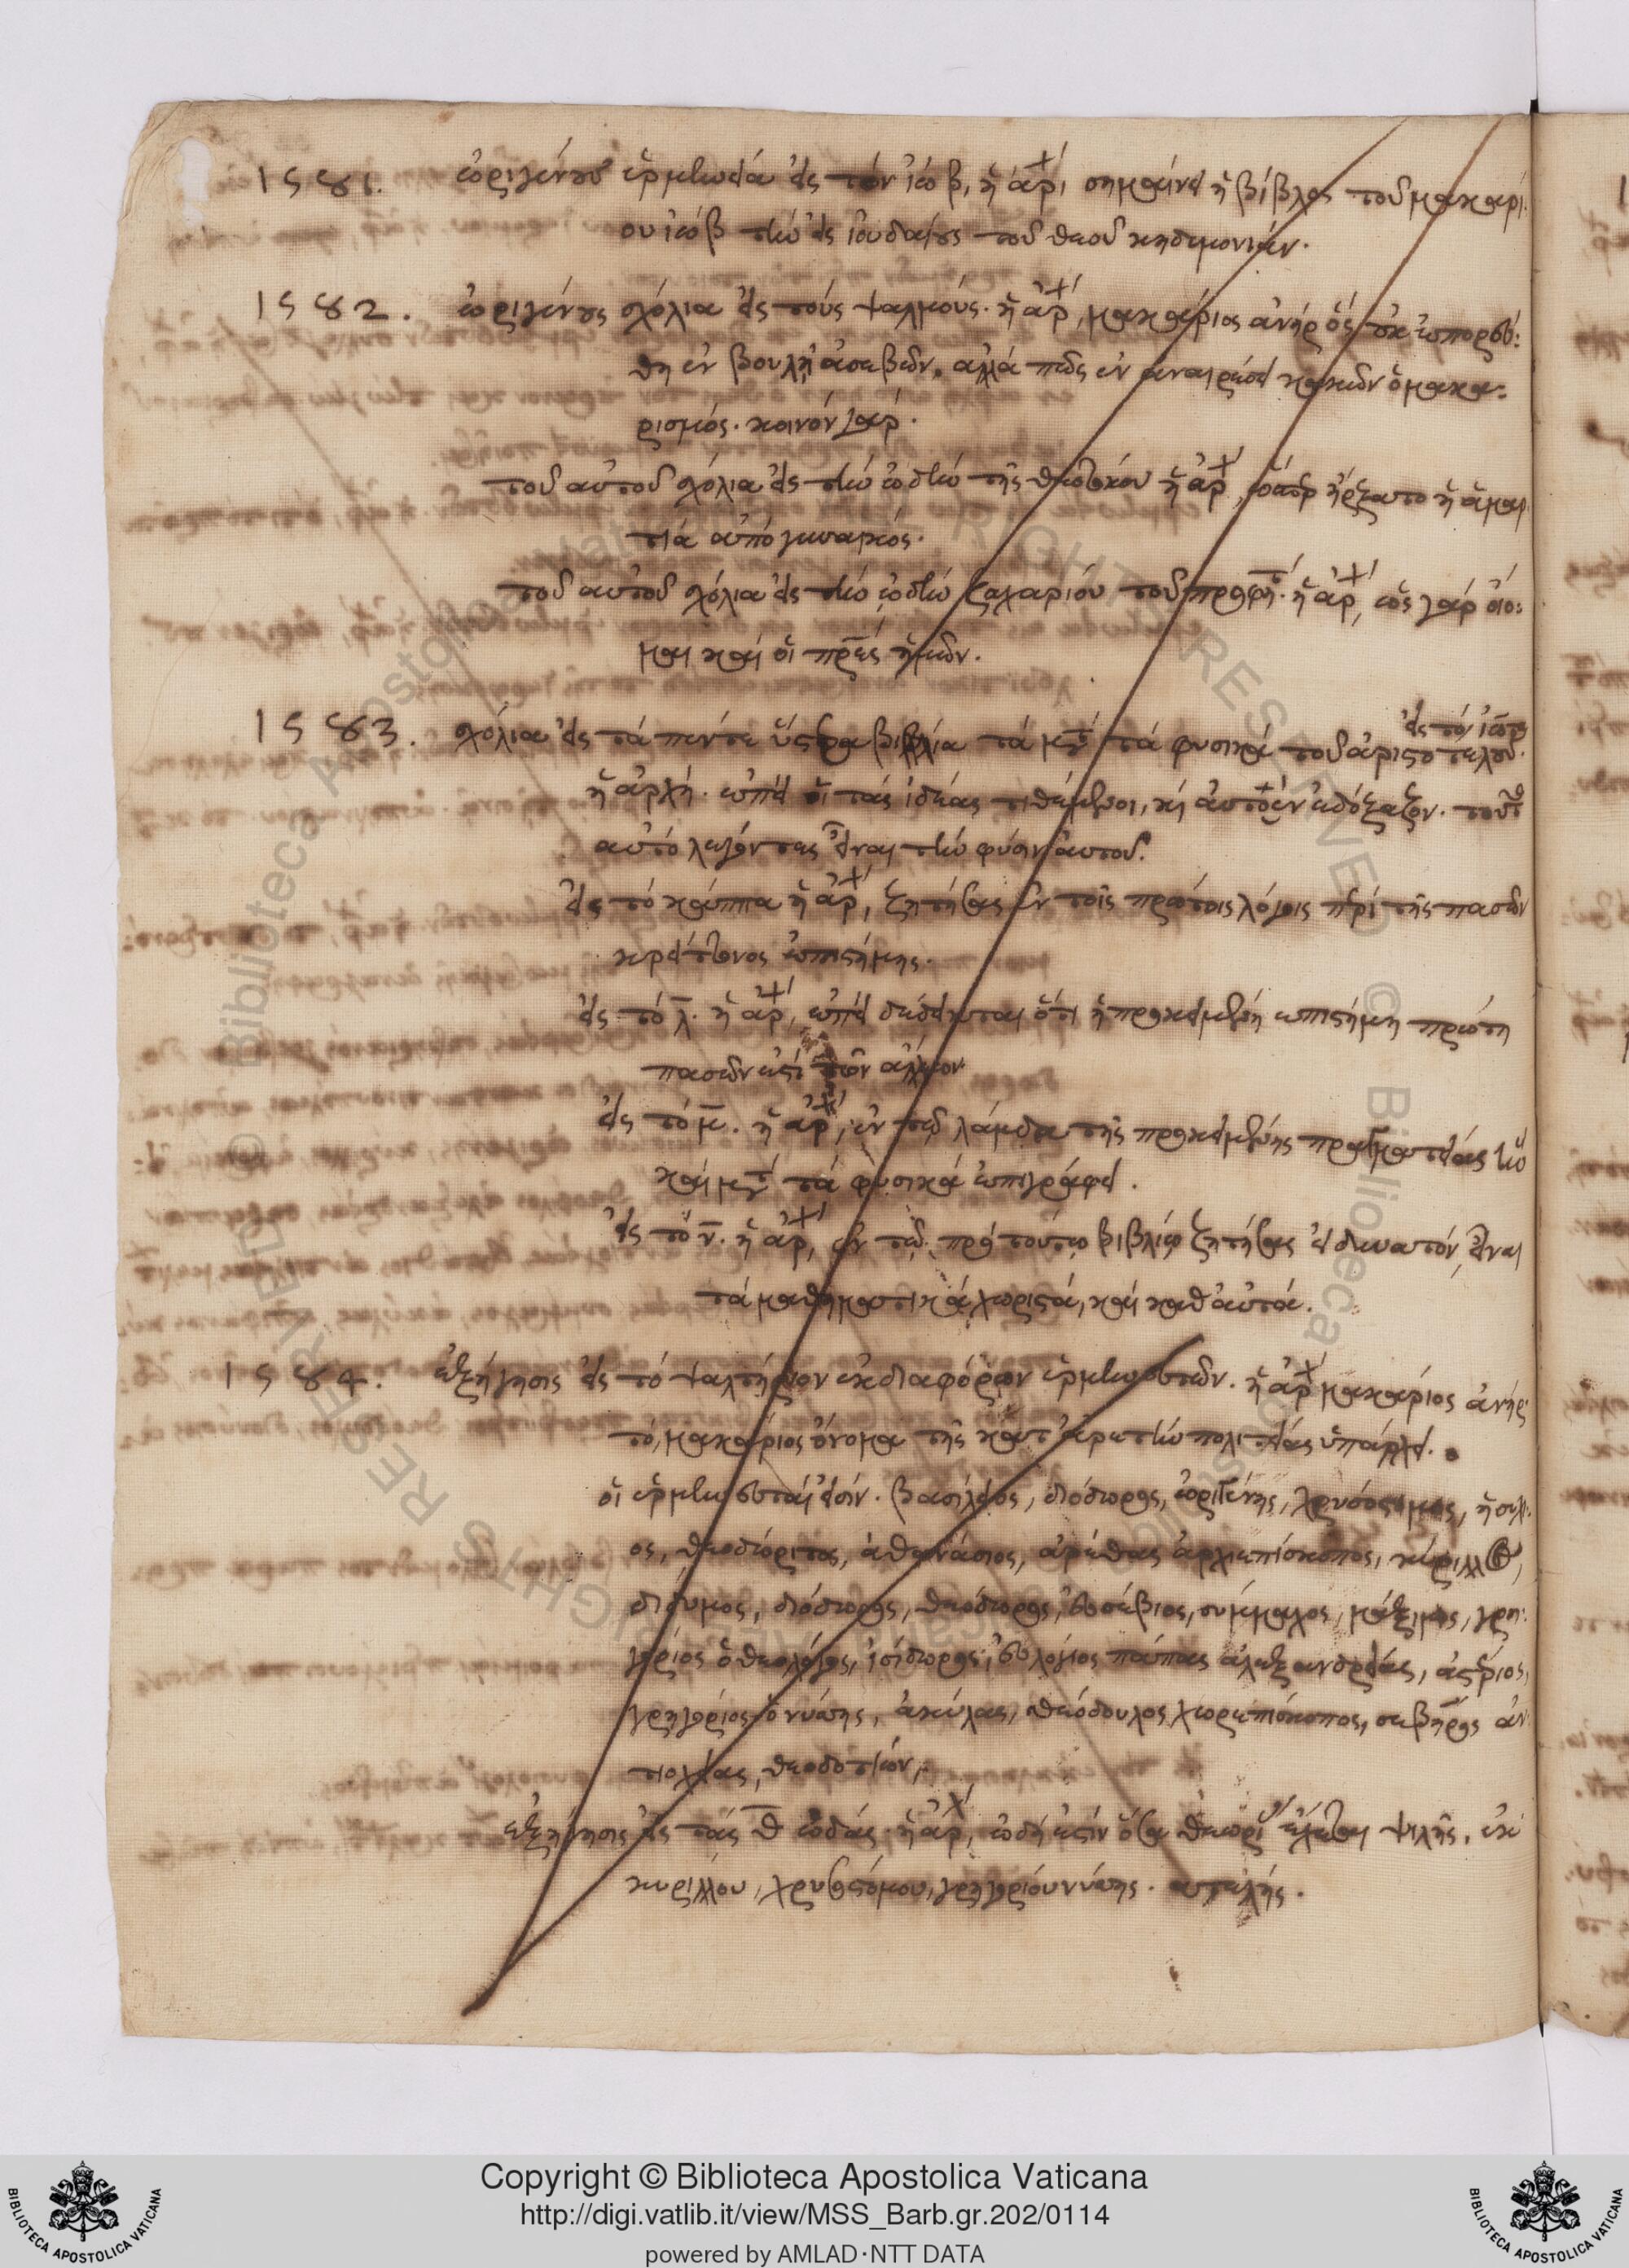 1581. ὠριγένους ἑρμηνεία εἰς τὸν ἰώβ, ἡ ἀρχή σημαίνει ἡ βίβλος τοῦ μακαρί-
ου ἰώβ τὴν εἰς ἰουδαίους τοῦ θεοῦ κηδεμονίαν.
1582. ὠριγένους σχόλια εἰς τοὺς ψαλμούς. ἡ ἀρχή, μακάριος ἀνήρ ὃς οὐκ ἐπορεύ-
θη ἐν βουλῇ ἀσεβῶν. ἀλλὰ πῶς ἐν ἀναιρέσει κακῶν ὁ μακα-
ρισμός. κοινὸν γάρ.
τοῦ αὐτοῦ σχόλια εἰς τὴν ὠδὴν τῆς θεοτόκου ἡ ἀρχή, ὥσπερ ἤρξατο ἡ ἁμαρ-
τία ἀπὸ γυναικός.
τοῦ αὐτοῦ σχόλια εἰς τὴν ὠδὴν ζαχαρίου τοῦ προφήτ. ἡ ἀρχή, ὡς γὰρ οἴο-
μαι καὶ οἱ πρες ἡμῶν.
1583. σχόλια εἰς τὰ πέντε ὕστερα βιβλία τὰ μετὰ τὰ φυσικὰ τοῦ ἀριστοτέλου.
ἡ ἀρχή. ἐπεὶ οἱ τὰς ἰδέας τιθέμενοι,
αὐτὸ λέγοντες εἶναι τὴν φύσιν αὐτοῦ.
εἰς τὸ κάππα ἡ ἀρχή, ζητήσας ἐν τοῖς πρώτοις λόγοις περὶ τῆς πασῶν
κρείττονος ἐπιστήμης.
εἰς τὸ λ. ἡ ἀρχή, ἐπεὶ δέδεικται ὅτι ἡ προκειμένη ἐπιστήμη πρώτη
πασῶν ἐστὶ τῶν ἄλλων
εἰς τὸ μ. ἡ ἀρχή, ἐν τῷ λάμβδα τῆς προκειμένης πραγματείας ἣν
καὶ μετὰ τὰ φυσικὰ ἐπιγράφει.
εἰς τὸ ν. ἡ ἀρχή, ἐν τῷ πρὸ τούτου βιβλίῳ ζητήσας εἰ δυνατόν, εἶναι
τὰ μαθηματικὰ χωριστά, καὶ καθ' αὑτά.
1584. ἐξήγησις εἰς τὸ ψαλτήριον ἐκ διαφόρων ἑρμηνευτῶν. ἡ ἀρχή μακάριος ἀνήρ
τό, μακάριος ὄνομα τῆς κατ' ἀρετὴν πολιτείας ὑπάρχει.
οἱ ἑρμηνευταὶ εἰσίν. βασίλειος, διόδωρος, ὠριγένης, χρυσόστομος, ἡσύχι-
ος, θεοδώριτος, ἀθανάσιος, ἀρέθας ἀρχιεπίσκοπος, κύριλλος,
δίδυμος, διόδωρος, θεόδωρος, εὐσέβιος, σύμμαχος, μάξιμος, γρη-
γόριος ὁ θεολόγος, ἰσίδωρος, εὐλόγιος πάπας ἀλεξανδρείας, ἀστέριος,
γρηγόριος ὁ νύσης, ἀκύλας, θεόδουλος χωρεπίσκοπος, σεβῆρος ἀν-
τιοχείας, θεοδοτίων,
ἐξήγησις εἰς τὰς θ ὠδάς. ἡ ἀρχή, ὠδή ἐστίν ψιλῆς, ἐκ
κυρίλλου, χρυσοστόμου, γρηγορίου νύσης. ἀτελής.
Copyright © Biblioteca Apostolica Vaticana
http://digi.vatlib.it/view/MSS_Barb.gr.202/0114
powered by AMLAD·NTT DATA